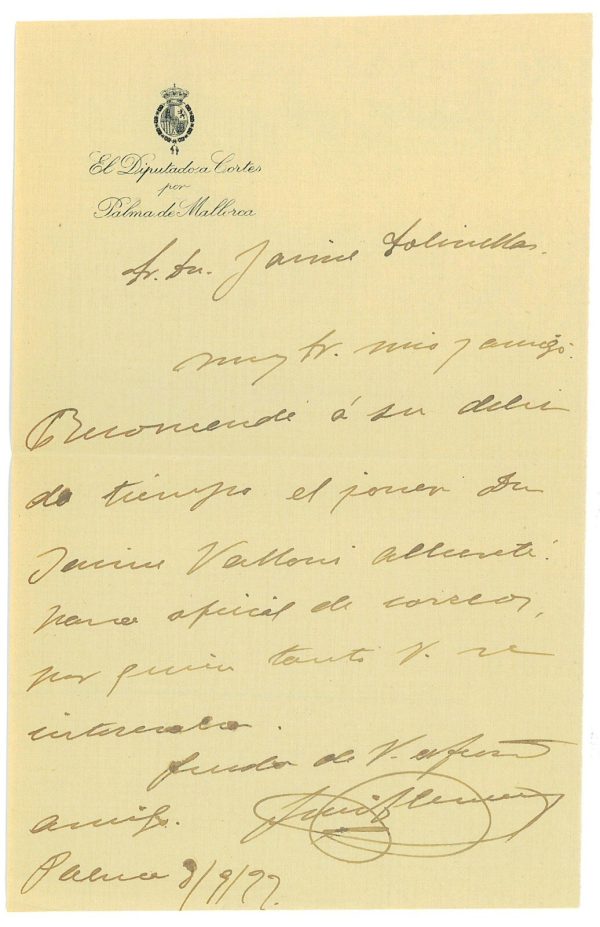 El Diputado a Cortes
por
Palma de Mallorca
Sr. Dn. Jaime
muy Sr. mio y amigo:
Recomendé á su debi
do tiempo el joven Dn
Jaime
para oficial de correos,
por quien tanto V. se
interesaba.
de V. afmo
amigo.
Palma 3/9/22